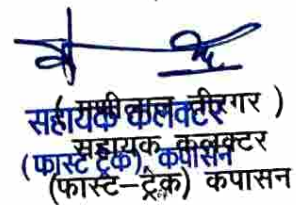 सहायक कलक्टर
(फास्ट ट्रेक), कपासन
सहायक कलक्टर
(फास्ट-ट्रेक) कपासन